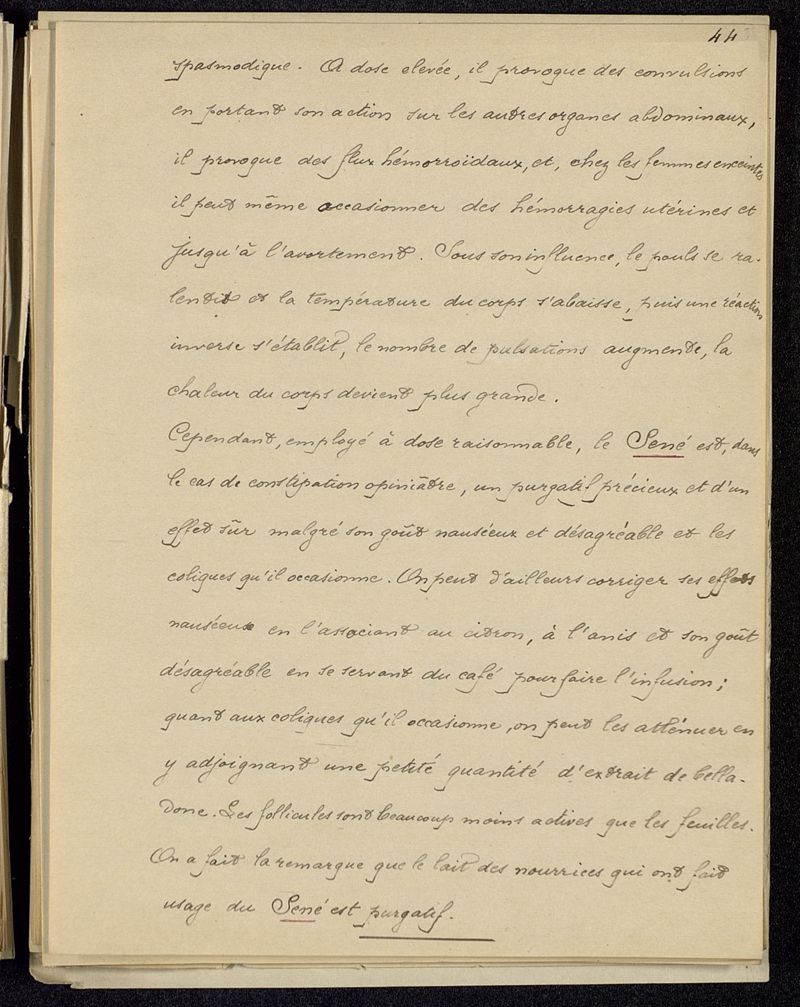 44
spasmodique. A dose elevée, il provoque des convulsions
en portant son action sur les autres organes abdominaux,
il provoque des flux hémorroïdaux, et, chez les femmes enceintes
il peut même occasionner des hémorragies utérines et
jusqu'à l'avortement. Sous son influence, le pouls se ra-
lentit et la température du corps s'abaisse, puis une réaction
inverse s'établit, le nombre de pulsations augmente, la
chaleur du corps devient plus grande.
Cependant, employé à dose raisonnable, le Sené est, dans
le cas de constipation opiniâtre, un purgatif précieux et d'un
effet sûr malgré son goût nauséeux et désagréable et les
coliques qu'il occasionne. On peut d'ailleurs corriger ses effets
nauséeux en l'associant au citron, à l'anis et son goût
désagréable en se servant du café pour faire l'infusion;
quant aux coliques qu'il occasionne, on peut les atténuer en
y adjoignant une petite quantité d'extrait de bella-
done. Les follicules sont beaucoup moins actives que les feuilles.
On a fait la remarque que le lait des nourrices qui ont fait
usage du Sené est purgatif.